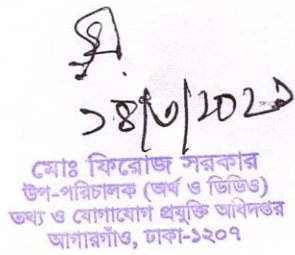 ১৪/৩/২০২১
মোঃ ফিরোজ সরকার
উপ-পরিচালক (অর্থ ও ডিডিও)
তথ্য ও যোগাযোগ প্রযুক্তি অধিদপ্তর
আগারগাঁও, ঢাকা-১২০৭